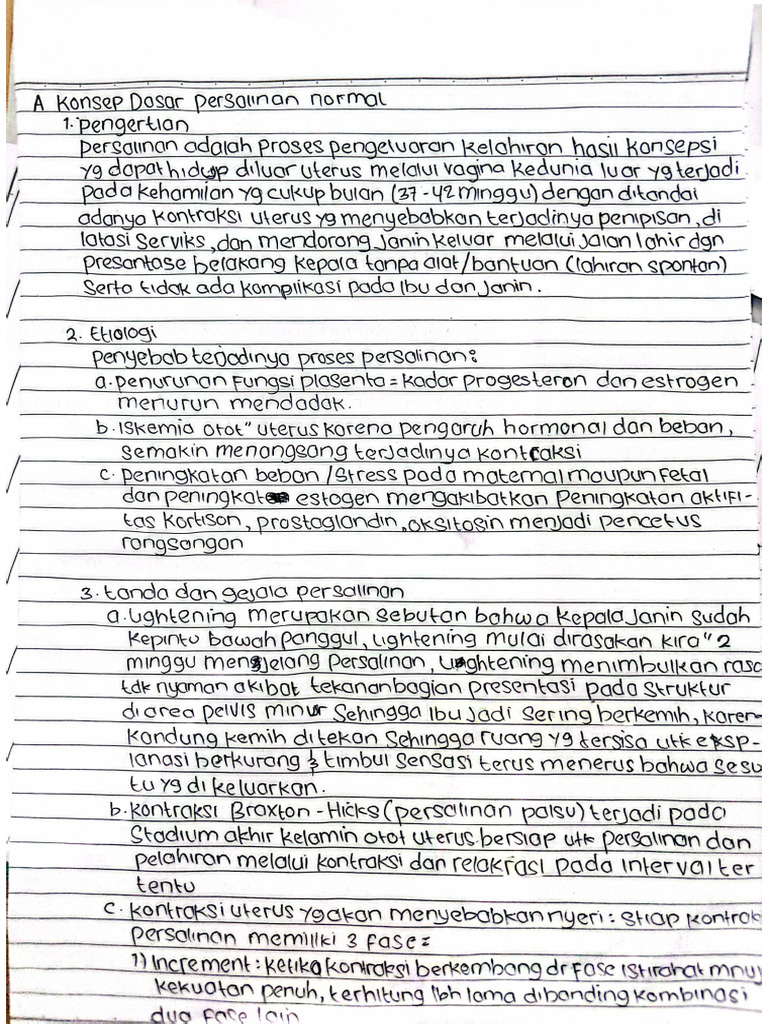 A Konsep Dasar persalinan normal
1. pengertian
persalinan adalah proses pengeluaran kelahiran hasil konsepsi
yg dapat hidup diluar uterus melalui vagina kedunia luar yg terjadi
pada kehamilan yg cukup bulan (37-42 minggu) dengan ditandai
adanya kontraksi uterus yg menyebabkan terjadinya penipisan, di
latasi serviks, dan mendorong Janin keluar melalui jalan lahir dgn
presantase belakang kepala tanpa alat/bantuan (lahiran spontan)
Serta tidak ada komplikasi pada Ibu dan Janin.
2. Etiologi
penyebab terjadinya proses persalinan:
a. penurunan Fungsi plasenta = kadar progesteron dan estrogen
menurun mendadak.
b. Iskemia otot" uterus karena pengaruh hormonal dan beban,
semakin menangsang terjadinya kontraksi
c. peningkatan beban /stress pada maternal maupun Fetal
dan peningkat estogen mengakibatkan peningkatan aktifi-
tas kortison, prostaglandin, oksitosin menjadi pencetus
rangsangan
3. tanda dan gejala persalinan
a. Lightening merupakan sebutan bahwa kepala Janin sudah
kepintu bawah panggul, Lightening mulai dirasakan kira" 2
minggu menjelang persalinan, Lightening menimbulkan rasa
tdk nyaman akibat tekanan bagian presentasi pada struktur
di area pelvis minur sehingga Ibu jadi sering berkemih, karen
kandung kemih ditekan sehingga ruang yg tersisa utk eksp-
lanasi berkurang & timbul sensasi terus menerus bahwa sesu
tu yg di keluarkan.
b. kontraksi Braxton-Hicks (persalinan palsu) terjadi pada
Stadium akhir kelamin otot uterus bersiap utk persalinan dan
pelahiran melalui kontraksi dan relakrasi pada interval ter
tentu
c. kontraksi uterus yg akan menyebabkan nyeri : stiap kontrak
persalinan memiliki 3 fase:
1) Increment : ketika kontraksi berkembang dr fase istirahat mnuj
kekuatan penuh, terhitung lbh lama dibanding kombinasi
dua fase lain